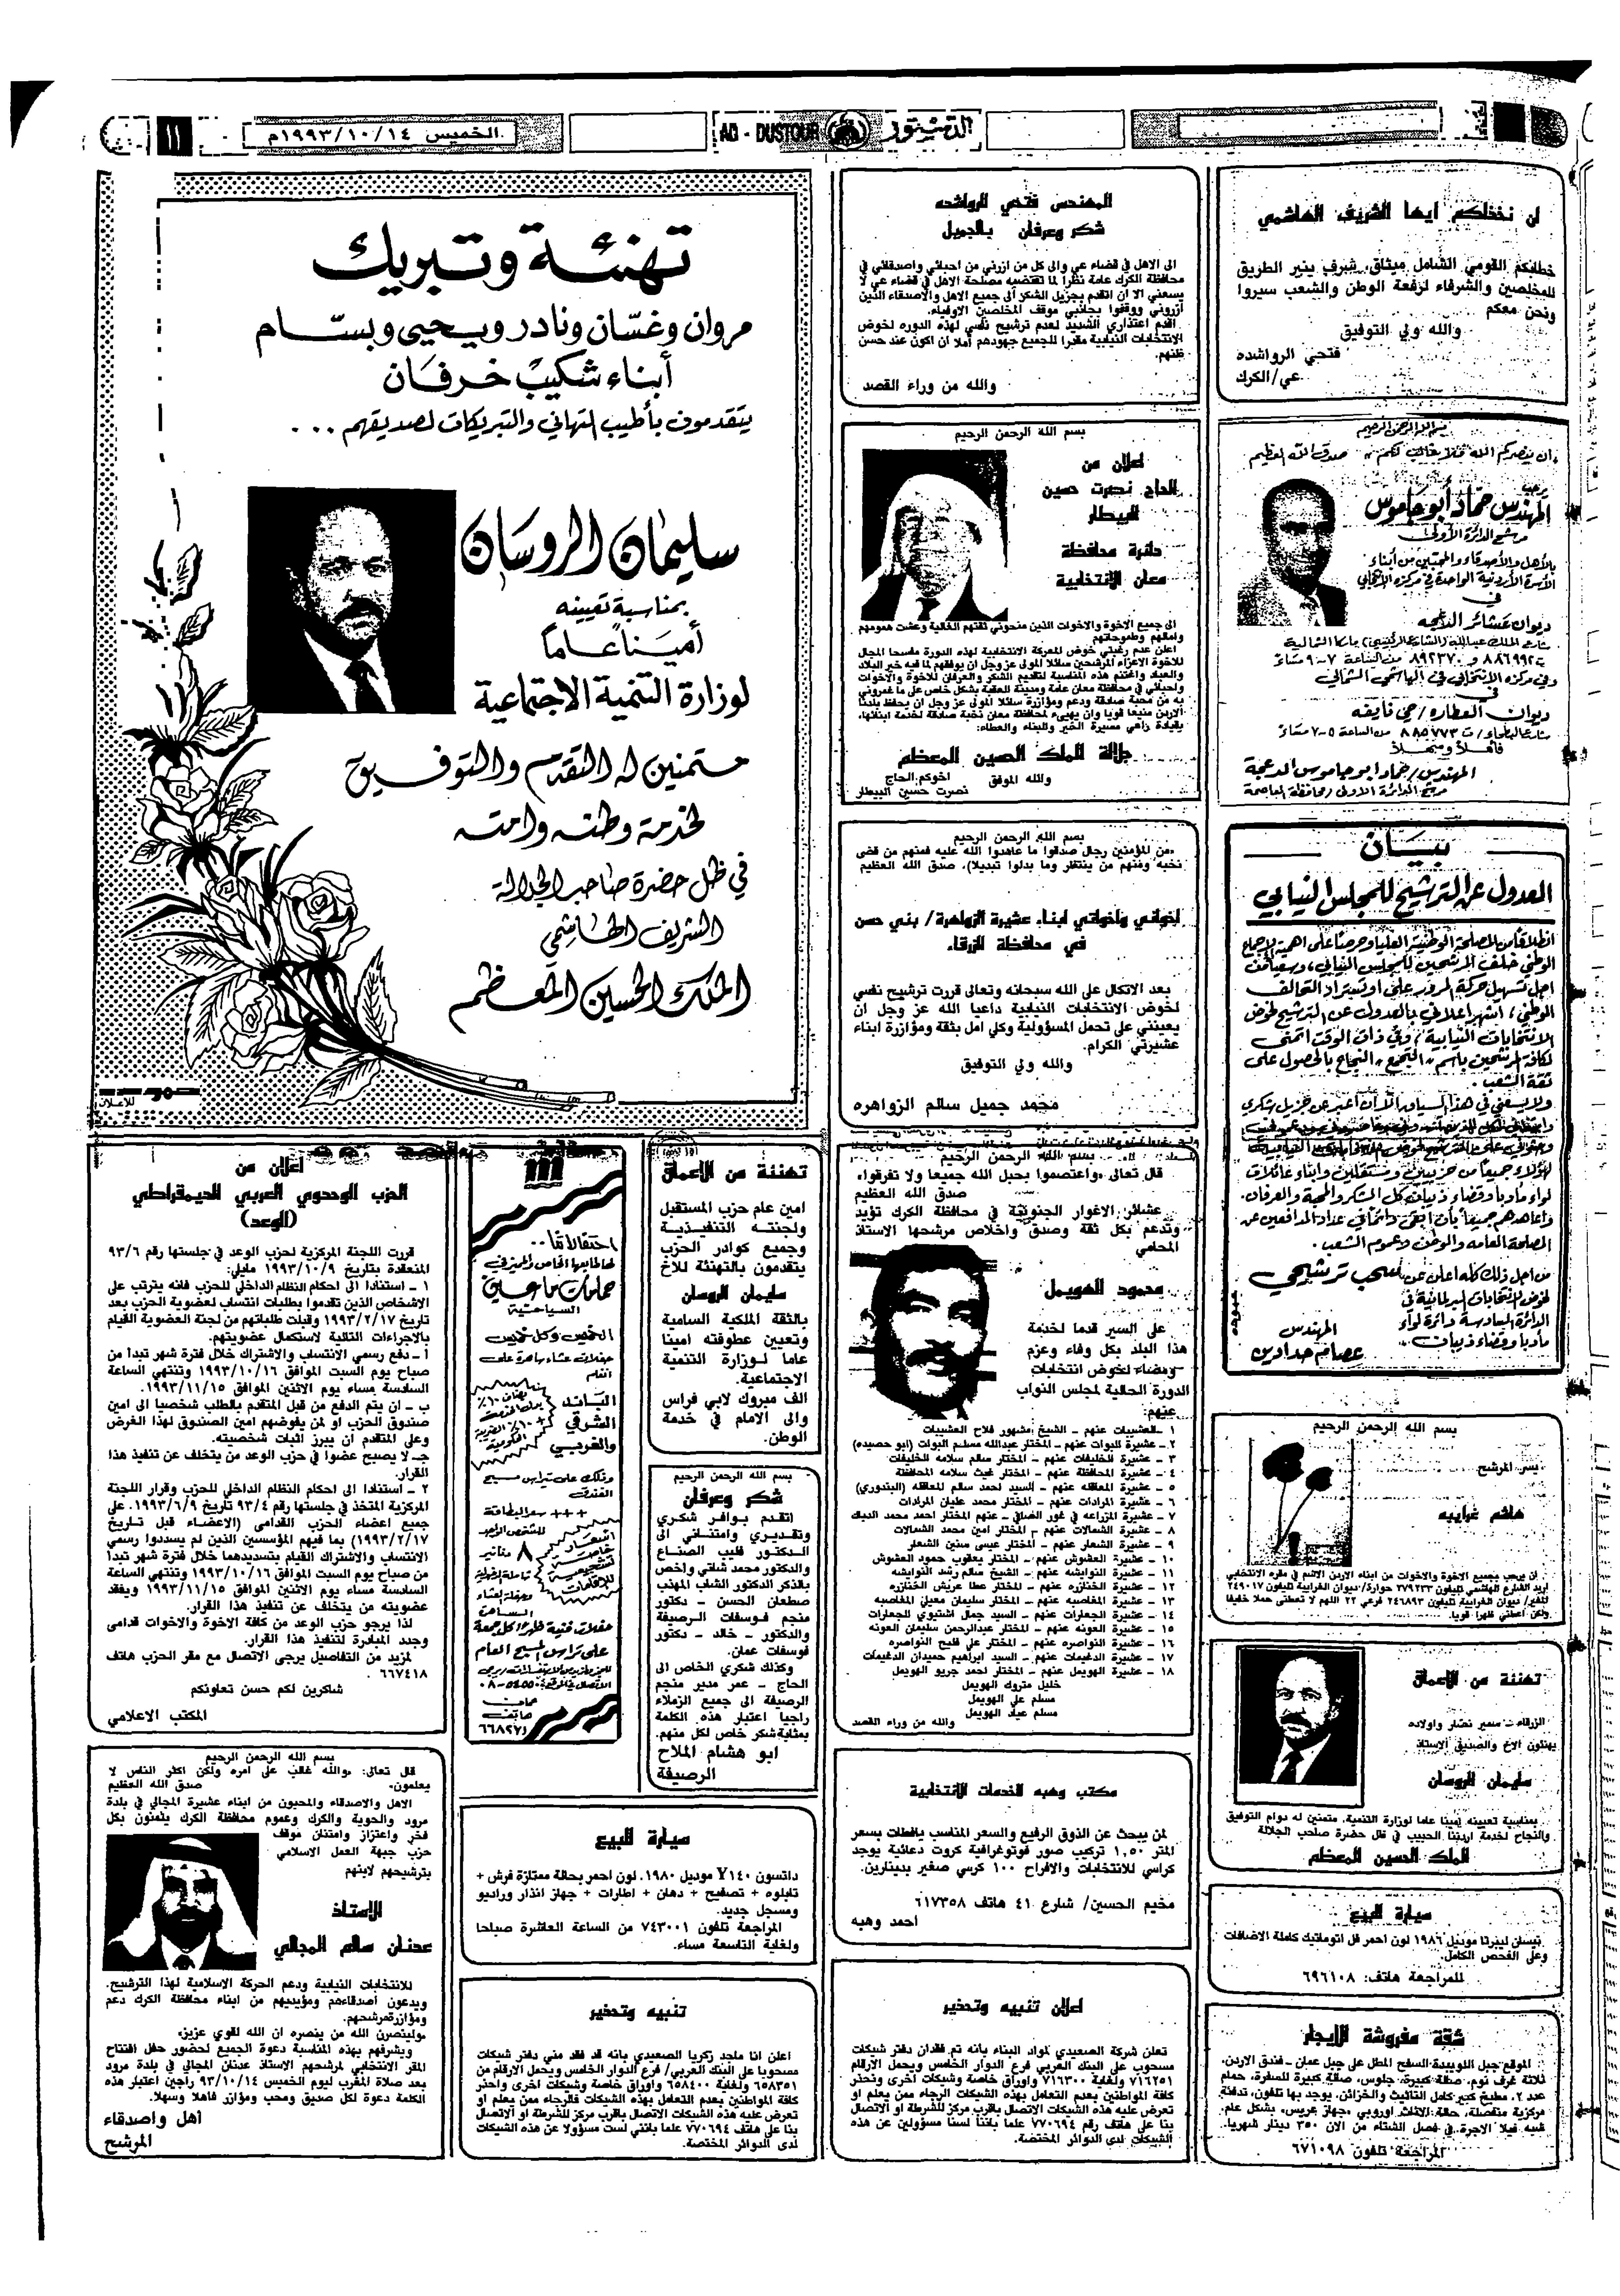 الخميس ١٤/١٠/١٩٩٣م
١١
AD - DUSTOUR
الدستور
لن نخذلكم أيها الشريف الهاشمي
خطابكم القومي الشامل ميثاق شرف ينير الطريق
للمخلصين والشرفاء لرفعة الوطن والشعب سيروا
ونحن معكم
والله ولي التوفيق
فتحي الرواشده
عي/الكرك
بسم الله الرحمن الرحيم
«ان ينصركم الله فلا غالب لكم» صدق الله العظيم
يرحب
المهندس حماد أبو جاموس
مرشح الدائرة الأولى
بالأهل والأصدقاء والمحبين من أبناء
الأسرة الأردنية الواحدة في مركزه الانتخابي
في
ديوان عشائر الدعجه
شارع الملك عبدالله (الشارع الرئيسي) ماركا الشمالية
ت ٨٨٦٩٩٢ و ٨٩٢٣٧٠ من الساعة ٧-٩ مساءً
وفي مركزه الانتخابي في الهاشمي الشمالي
في
ديوان العطاره/حي نايفه
شارع البطحاء/ ت ٨٨٥٧٧٣ من الساعة ٥-٧ مساءً
فأهلاً وسهلاً
المهندس/حماد ابو جاموس الدعجة
مرشح الدائرة الاولى/محافظة العاصمة
بيان
العدول عن الترشيح للمجلس النيابي
انطلاقا من المصلحة الوطنية العليا وحرصا على اهمية الاجماع
الوطني خلف المرشحين للمجلس النيابي، وسعيا من
اجل تسهيل حركة المرور على اوتوستراد التحالف
الوطني، اشهر اعلاني بالعدول عن الترشيح لخوض
الانتخابات النيابية، وفي ذات الوقت اتمنى
لكافة المرشحين باسم «التجمع» النجاح بالحصول على
ثقة الشعب.
ولا يسعني في هذا السياق الا ان اعبر عن جزيل شكري
لهؤلاء جميعا من حزبيين ومستقلين وابناء عائلات
لواء مادبا وقضاء ذيبان كل الشكر والمحبة والعرفان.
واعاهدهم جميعا بأن ابقى دائما في عداد المدافعين عن
المصلحة العامه والوطن وهموم الشعب.
من اجل ذلك كله اعلن عن سحب ترشيحي
لخوض الانتخابات البرلمانية في
الدائرة السادسة دائرة لواء
مادبا وقضاء ذيبان..
المهندس
عصام حدادين
بسم الله الرحمن الرحيم
يسر المرشح
هاشم غرايبه
ان يرحب بجميع الاخوة والاخوات من ابناء الاردن الاشم في مقره الانتخابي
اربد الشارع الهاشمي تليفون ٢٧٩٢٣٣ حوارة/ديوان الغرايبة تليفون ٢٤٩٠١٧
المغير/ ديوان الغرايبة تليفون ٢٤٦٨٩٣ فرعي ٢٢ اللهم لا تعطني حملا خفيفا
ولكن اعطني ظهرا قويا.
تهنئة من الأعماق
الزرقاء - سمير نصار واولاده
يهنئون الاخ والصديق الاستاذ
سليمان الروسان
بمناسبة تعيينه امينا عاما لوزارة التنمية، متمنين له دوام التوفيق
والنجاح لخدمة اردننا الحبيب في ظل حضرة صاحب الجلالة
الملك الحسين المعظم
سيارة للبيع
نيسان ليبرتا موديل ١٩٨٦ لون احمر فل اتوماتيك كاملة الاضافات
وعلى الفحص الكامل.
للمراجعة هاتف: ٦٩٦١٠٨
شقة مفروشة للايجار
الموقع جبل اللويبدة السفح المطل على جبل عمان - فندق الاردن.
ثلاثة غرف نوم، صالة كبيرة، جلوس، صالة كبيرة للسفرة، حمام
عدد ٢، مطبخ كبير كامل التأثيث والخزائن، يوجد بها تلفون، تدفئة
مركزية منفصلة، حالة الاثاث اوروبي «جهاز عريس» بشكل عام
شبه فيلا الاجرة في فصل الشتاء من الان ٣٥٠ دينار شهريا.
المراجعة تلفون ٦٧١٠٩٨
المهندس فتحي الرواشده
شكر وعرفان بالجميل
الى الاهل في قضاء عي والى كل من ازرني من احبائي واصدقائي في
محافظة الكرك عامة نظرا لما تقتضيه مصلحة الاهل في قضاء عي لا
يسعني الا ان اتقدم بجزيل الشكر الى جميع الاهل والاصدقاء الذين
أزروني ووقفوا بجانبي موقف المخلصين الاوفياء.
اقدم اعتذاري الشديد لعدم ترشيح نفسي لهذه الدوره لخوض
الانتخابات النيابية مقدرا للجميع جهودهم أملا ان اكون عند حسن
ظنهم.
والله من وراء القصد
بسم الله الرحمن الرحيم
اعلان من
الحاج نصرت حسين
البيطار
دائرة محافظة
معان الانتخابية
الى جميع الاخوة والاخوات الذين منحوني ثقتهم الغالية وعشت همومهم
وامالهم وطموحاتهم
اعلن عدم رغبتي خوض المعركة الانتخابية لهذه الدورة مفسحا المجال
للاخوة الاعزاء المرشحين سائلا المولى عز وجل ان يوفقهم لما فيه خير البلاد
والعباد واغتنم هذه المناسبة لتقديم الشكر والعرفان للاخوة والاخوات
واحبائي في محافظة معان عامة ومدينة العقبة بشكل خاص على ما غمروني
به من محبة صادقة ودعم ومؤازرة سائلا المولى عز وجل ان يحفظ بلدنا
الاردن منيعا قويا وان يهيىء لمحافظة معان نخبة صادقة لخدمة ابنائها،
بقيادة راعي مسيرة الخير والبناء والعطاء:
جلالة الملك الحسين المعظم
والله الموفق
اخوكم الحاج
نصرت حسين البيطار
بسم الله الرحمن الرحيم
«من المؤمنين رجال صدقوا ما عاهدوا الله عليه فمنهم من قضى
نحبه ومنهم من ينتظر وما بدلوا تبديلا)، صدق الله العظيم
اخواني واخواتي ابناء عشيرة الزواهرة/ بني حسن
في محافظة الزرقاء
بعد الاتكال على الله سبحانه وتعالى قررت ترشيح نفسي
لخوض الانتخابات النيابية داعيا الله عز وجل ان
يعينني على تحمل المسؤولية وكلي امل بثقة ومؤازرة ابناء
عشيرتي الكرام.
والله ولي التوفيق
محمد جميل سالم الزواهره
بسم الله الرحمن الرحيم
قال تعالى «واعتصموا بحبل الله جميعا ولا تفرقوا»
صدق الله العظيم
عشائر الاغوار الجنوبية في محافظة الكرك تؤيد
وتدعم بكل ثقة وصدق واخلاص مرشحها الاستاذ
المحامي
محمود الهويمل
على السير قدما لخدمة
هذا البلد بكل وفاء وعزم
ومضاء لخوض انتخابات
الدورة الحالية لمجلس النواب
عنهم:
١ - العشيبات عنهم - الشيخ مشهور فلاح العشيبات
٢ - عشيرة البوات عنهم - المختار عبدالله مسلم البوات (ابو حصيده)
٣ - عشيرة الخليفات عنهم - المختار سالم سلامه الخليفات
٤ - عشيرة المحافظة عنهم - المختار غيث سلامه المحافظة
٥ - عشيرة المعاقله عنهم - السيد احمد سالم المعاقله (البندوري)
٦ - عشيرة المرادات عنهم - المختار محمد عليان المرادات
٧ - عشيرة المزارعه في غور الصافي - عنهم المختار احمد محمد الديك
٨ - عشيرة الشمالات عنهم - المختار امين محمد الشمالات
٩ - عشيرة الشعار عنهم - المختار عيسى سنين الشعار
١٠ - عشيرة العشوش عنهم - المختار يعقوب حمود العشوش
١١ - عشيرة النوايشه عنهم - الشيخ سالم رشد النوايشه
١٢ - عشيرة الخنازره عنهم - المختار عطا عريش الخنازره
١٣ - عشيرة المغاصبه عنهم - المختار سليمان معيلي المغاصبه
١٤ - عشيرة الجعارات عنهم - السيد جمال اشتيوي الجعارات
١٥ - عشيرة العونه عنهم - المختار عبدالرحمن سليمان العونه
١٦ - عشيرة النواصره عنهم - المختار علي فليح النواصره
١٧ - عشيرة الدغيمات عنهم - السيد ابراهيم حميدان الدغيمات
١٨ - عشيرة الهويمل عنهم - المختار احمد جريو الهويمل
خليل متروك الهويمل
مسلم علي الهويمل
مسلم عياد الهويمل
والله من وراء القصد
مكتب وهبه للخدمات الانتخابية
لمن يبحث عن الذوق الرفيع والسعر المناسب يافطات بسعر
المتر ١,٥٠ تركيب صور فوتوغرافية كروت دعائية يوجد
كراسي للانتخابات والافراح ١٠٠ كرسي صغير بدينارين.
مخيم الحسين/ شارع ٤١ هاتف ٦١٧٣٥٨
احمد وهبه
اعلان تنبيه وتحذير
تعلن شركة الصعيدي لمواد البناء بانه تم فقدان دفتر شيكات
مسحوب على البنك العربي فرع الدوار الخامس ويحمل الارقام
٧١٦٢٥١ ولغاية ٧١٦٣٠٠ واوراق خاصة وشيكات اخرى ونحذر
كافة المواطنين بعدم التعامل بهذه الشيكات الرجاء ممن يعلم او
تعرض عليه هذه الشيكات الاتصال باقرب مركز للشرطة او الاتصال
بنا على هاتف رقم ٧٧٠٦٩٤ علما باننا لسنا مسؤولين عن هذه
الشيكات لدى الدوائر المختصة.
تهنئة وتبريك
مروان وغسّان ونادر ويحيى وبسّام
أبناء شكيب خرفان
يتقدمون بأطيب التهاني والتبريكات لصديقهم ...
سليمان الروسان
بمناسبة تعيينه
أميناً عاماً
لوزارة التنمية الاجتماعية
متمنين له التقدم والتوفيق
لخدمة وطنه وامته
في ظل حضرة صاحب الجلالة
الشريف الهاشمي
الملك الحسين المعظم
للاعلان
تهنئة من الأعماق
امين عام حزب المستقبل
ولجنته التنفيذية
وجميع كوادر الحزب
يتقدمون بالتهنئة للاخ
سليمان الروسان
بالثقة الملكية السامية
وتعيين عطوفته امينا
عاما لوزارة التنمية
الاجتماعية.
الف مبروك لابي فراس
والى الامام في خدمة
الوطن.
بسم الله الرحمن الرحيم
شكر وعرفان
اتقدم بوافر شكري
وتقديري وامتناني الى
الدكتور قليب الصناع
والدكتور محمد شلقي واخص
بالذكر الدكتور الشاب المهذب
صطعان الحسن - دكتور
منجم فوسفات الرصيفة
والدكتور - خالد - دكتور
فوسفات عمان.
وكذلك شكري الخاص الى
الحاج - عمر مدير منجم
الرصيفة الى جميع الزملاء
راجيا اعتبار هذه الكلمة
بمثابة شكر خاص لكل منهم.
ابو هشام الملاح
الرصيفة
احتفالاتنا..
بطابعها الخاص والمميز في
حمامات ماعين
السياحية
الخميس وكل خميس
حفلات عشاء ساهرة على
انغام
الباند
الشرقي
والغربي
وذلك على تراس مسبح
الفندق
+++ سعر البطاقة
للشخص الواحد
٨ دنانير
على تراس المسبح العام
هاتف
٦٦٨٢٧١
اعلان من
الحزب الوحدوي العربي الديمقراطي
(الوعد)
قررت اللجنة المركزية لحزب الوعد في جلستها رقم ٩٣/٦
المنعقدة بتاريخ ١٩٩٣/١٠/٩ مايلي:
١ - استنادا الى احكام النظام الداخلي للحزب فانه يترتب على
الاشخاص الذين تقدموا بطلبات انتساب لعضوية الحزب بعد
تاريخ ١٩٩٣/٢/١٧ وقبلت طلباتهم من لجنة العضوية القيام
بالاجراءات التالية لاستكمال عضويتهم.
أ - دفع رسمي الانتساب والاشتراك خلال فترة شهر تبدأ من
صباح يوم السبت الموافق ١٩٩٣/١٠/١٦ وتنتهي الساعة
السادسة مساء يوم الاثنين الموافق ١٩٩٣/١١/١٥.
ب - ان يتم الدفع من قبل المتقدم بالطلب شخصيا الى امين
صندوق الحزب او لمن يفوضهم امين الصندوق لهذا الغرض
وعلى المتقدم ان يبرز اثبات شخصيته.
جـ لا يصبح عضوا في حزب الوعد من يتخلف عن تنفيذ هذا
القرار.
٢ - استنادا الى احكام النظام الداخلي للحزب وقرار اللجنة
المركزية المتخذ في جلستها رقم ٩٣/٤ تاريخ ١٩٩٣/٦/٩. على
جميع اعضاء الحزب القدامى (الاعضاء قبل تاريخ
١٩٩٣/٢/١٧) بما فيهم المؤسسين الذين لم يسددوا رسمي
الانتساب والاشتراك القيام بتسديدهما خلال فترة شهر تبدأ
من صباح يوم السبت الموافق ١٩٩٣/١٠/١٦ وتنتهي الساعة
السادسة مساء يوم الاثنين الموافق ١٩٩٣/١١/١٥ ويفقد
عضويته من يتخلف عن تنفيذ هذا القرار.
لذا يرجو حزب الوعد من كافة الاخوة والاخوات قدامى
وجدد المبادرة لتنفيذ هذا القرار.
لمزيد من التفاصيل يرجى الاتصال مع مقر الحزب هاتف
٦٦٧٤١٨.
شاكرين لكم حسن تعاونكم
المكتب الاعلامي
سيارة للبيع
داتسون ١٤٠Y موديل ١٩٨٠. لون احمر بحالة ممتازة فرش +
تابلوه + تصفيح + دهان + اطارات + جهاز انذار وراديو
ومسجل جديد.
المراجعة تلفون ٧٤٣٠٠١ من الساعة العاشرة صباحا
ولغاية التاسعة مساء.
تنبيه وتحذير
اعلن انا ماجد زكريا الصعيدي بانه قد فقد مني دفتر شيكات
مسحوبا على البنك العربي/ فرع الدوار الخامس ويحمل الارقام من
٦٥٨٣٥١ ولغاية ٦٥٨٤٠٠ واوراق خاصة وشيكات اخرى واحذر
كافة المواطنين بعدم التعامل بهذه الشيكات فالرجاء ممن يعلم او
تعرض عليه هذه الشيكات الاتصال باقرب مركز للشرطة او الاتصال
بنا على هاتف ٧٧٠٦٩٤ علما بانني لست مسؤولا عن هذه الشيكات
لدى الدوائر المختصة.
بسم الله الرحمن الرحيم
قال تعالى: «والله غالب على امره ولكن اكثر الناس لا
يعلمون» صدق الله العظيم
الاهل والاصدقاء والمحبون من ابناء عشيرة المجالي في بلدة
مرود والحوية والكرك وعموم محافظة الكرك يثمنون بكل
فخر واعتزاز وامتنان موقف
حزب جبهة العمل الاسلامي
بترشيحهم لابنهم
الاستاذ
عدنان سالم المجالي
للانتخابات النيابية ودعم الحركة الاسلامية لهذا الترشيح.
ويدعون أصدقاءهم ومؤيديهم من ابناء محافظة الكرك دعم
ومؤازرة مرشحهم.
«ولينصرن الله من ينصره ان الله لقوي عزيز»
ويشرفهم بهذه المناسبة دعوة الجميع لحضور حفل افتتاح
المقر الانتخابي لمرشحهم الاستاذ عدنان المجالي في بلدة مرود
بعد صلاة المغرب ليوم الخميس ٩٣/١٠/١٤ راجين اعتبار هذه
الكلمة دعوة لكل صديق ومحب ومؤازر فاهلا وسهلا.
اهل واصدقاء
المرشح